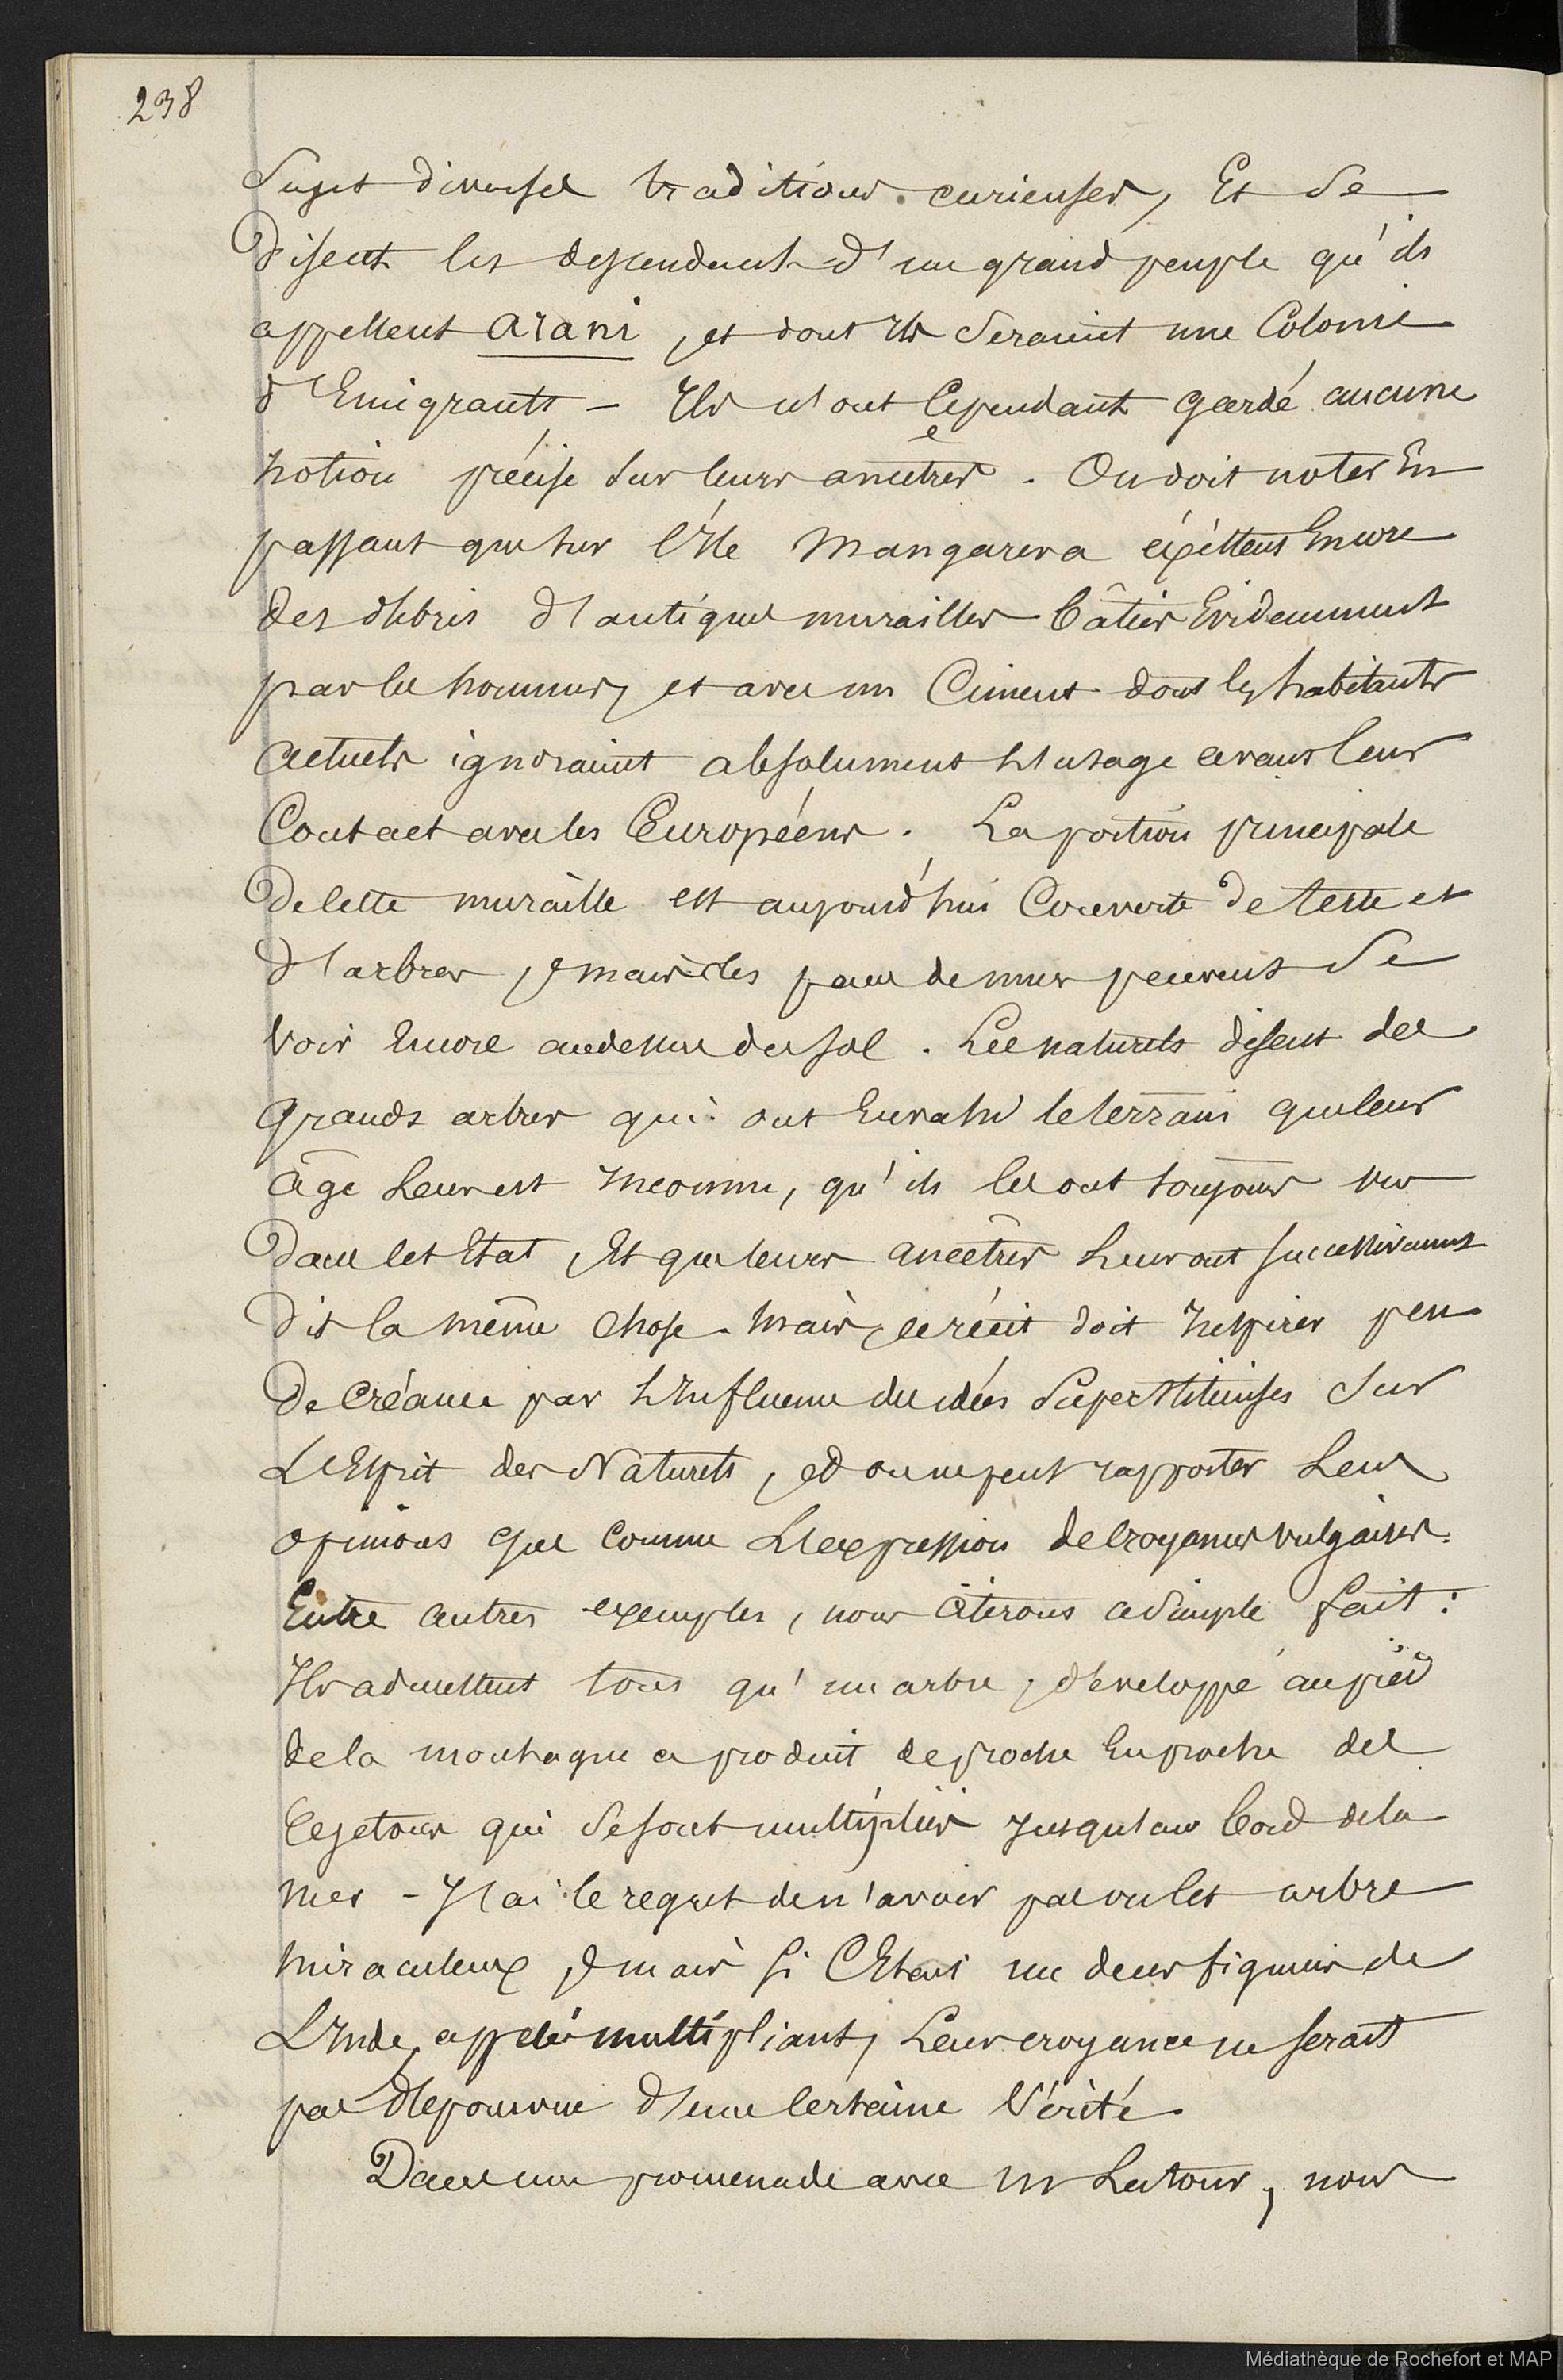 238
Sujet diverses traditions curieuses, Et Se
Disent les descendants d'un grand peuple qu'ils
appellent arani, et dont Ils Seraient une Colonie
d'Emigrants - Ils n'ont Cependant gardé aucune
notion précise Sur leurs ancêtres. On doit noter En
passant que sur l'Ile Mangareva existent Encore
des débris d'antiques murailles bâties Evidemment
par les hommes, et avec un Ciment dont les habitants
actuels ignoraient absolument l'usage avant leur
Contact avec les Européens. La portion principale
De cette muraille est aujourd'hui Couverte de terre et
d'arbres, mais des pans de murs peuvent Se
Voir Encore au dessus du sol. Les naturels disent des
grands arbres qui ont Envahi le terrain que leur
âge Leur est Inconnu, qu'ils les ont toujours vus
Dans cet Etat, Et que leurs ancêtres Leur ont successivement
dit la même chose. Mais, ce récit doit Inspirer peu
De créance par l'Influence des idées Superstitieuses Sur
L'Esprit des Naturels, et on ne peut rapporter Leurs
opinions que Comme L'expression de Croyances vulgaires.
Entre autres exemples, nous Citerons ce Simple fait :
Ils admettent tous qu'un arbre, développé au pied
de la montagne a produit de proche En proche des
rejetons qui Se sont multipliés Jusqu'au bord de la
mer - J'ai le regret de n'avoir pas vu cet arbre
miraculeux, mais si C'Etait un de ces figuiers de
L'Inde, appelés multipliants, Leur croyance ne serait
pas dépourvue d'une Certaine Vérité.
Dans une promenade avec Mr Latour, nous
Médiathèque de Rochefort et MAP